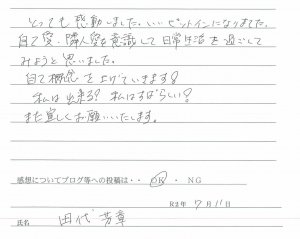 とっても感動しました。いいピットインになりました。
自己愛・隣人愛を意識して日常生活を過ごして
みようと思いました。
自己概念を上げていきます!
私は出来る? 私はすばらしい!
また宜しくお願いいたします。
感想についてブログ等への投稿は・・ OK ・ NG
7月11日
氏名 田代 芳章